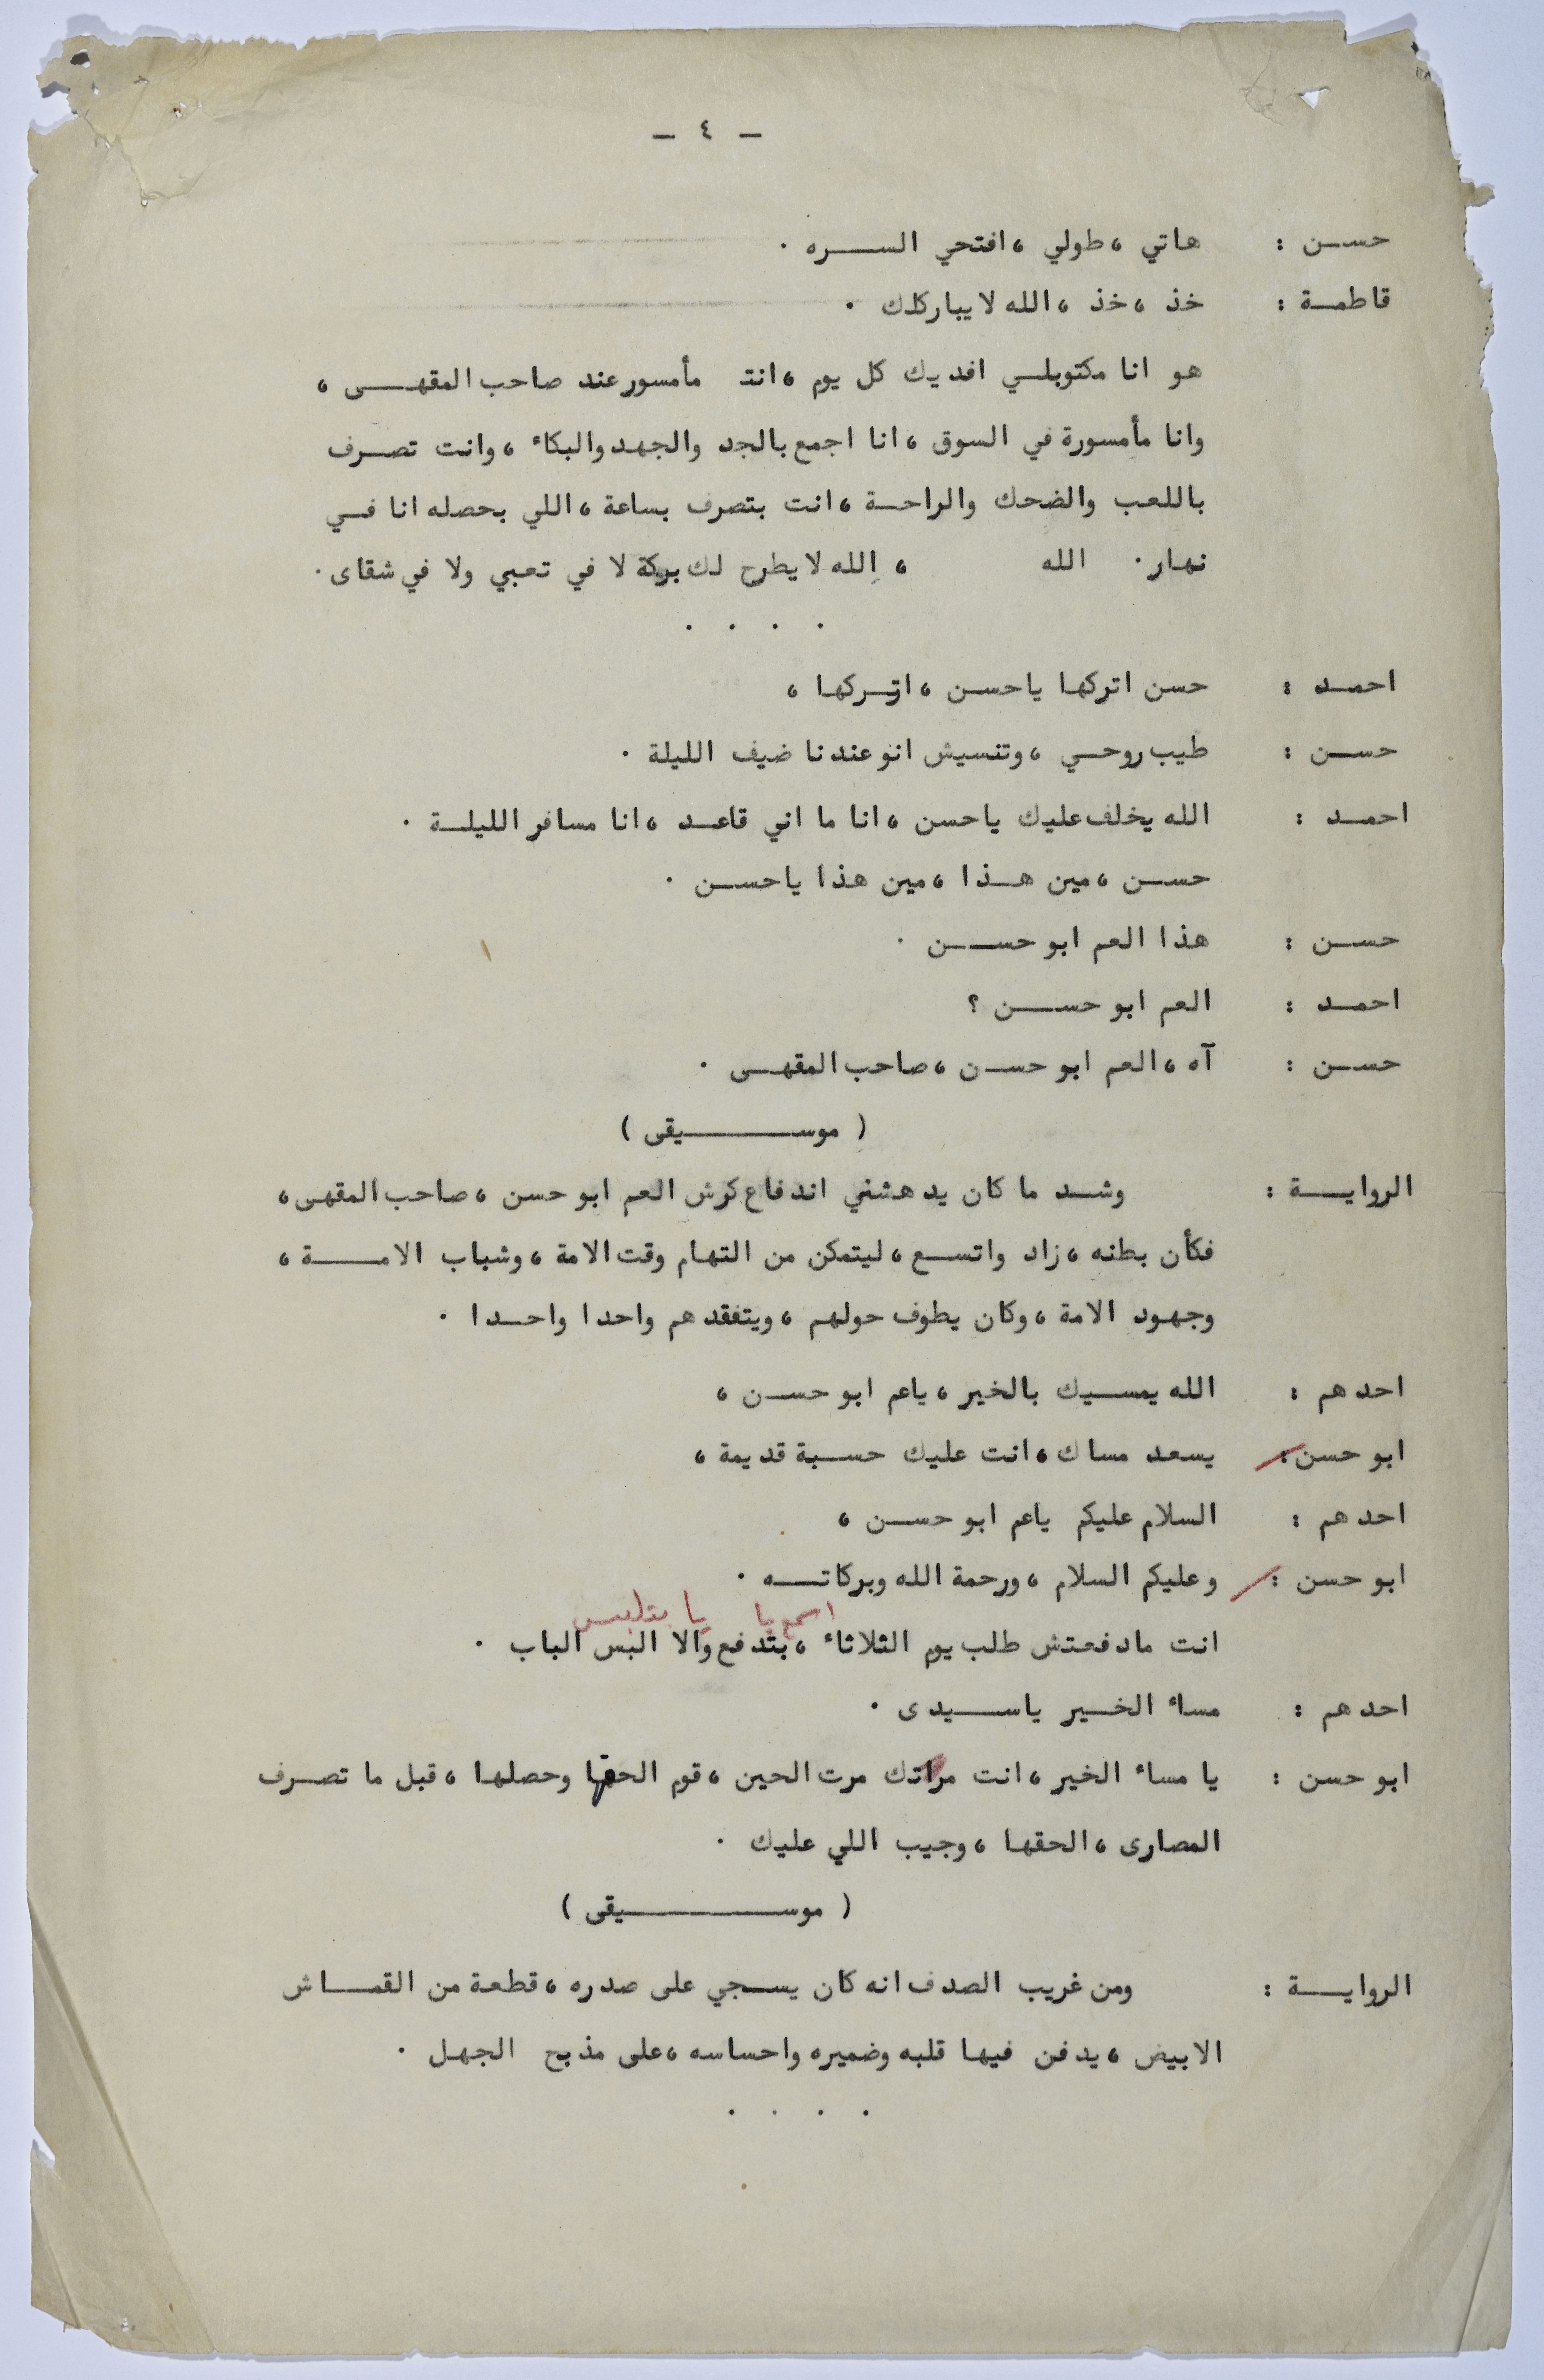 - ٤ -
حسن : هاتي ، طولي ، افتحي السره .
فاطمة : خذ ، خذ ، الله لا يباركلك .
هو انا مكتوبلي افديك كل يوم ، انت مأمسور عند صاحب المقهى ،
وانا مأمسورة في السوق ، انا اجمع بالجد والجهد والبكاء ، وانت تصرف
باللعب والضحك والراحة ، انت بتصرف بساعة ، اللي بحصله انا في
نهار . الله ، الله لا يطرح لك بركة لا في تعبي ولا في شقاى .
. . . .
احمد : حسن اتركها ياحسن ، اتركها ،
حسن : طيب روحي ، وتنسيش انو عندنا ضيف الليلة .
احمد : الله يخلف عليك ياحسن ، انا ما اني قاعد ، انا مسافر الليلة .
حسن ، مين هذا ، مين هذا ياحسن .
حسن : هذا العم ابو حسن .
احمد : العم ابو حسن ؟
حسن : آه ، العم ابو حسن ، صاحب المقهى .
( موسيقى )
الرواية : وشد ما كان يدهشني اندفاع كرش العم ابو حسن ، صاحب المقهى ،
فكأن بطنه ، زاد واتسع ، ليتمكن من التهام وقت الامة ، وشباب الامة ،
وجهود الامة ، وكان يطوف حولهم ، ويتفقدهم واحدا واحدا .
احدهم : الله يمسيك بالخير ، ياعم ابو حسن ،
ابو حسن : يسعد مساك ، انت عليك حسبة قديمة ،
احدهم : السلام عليكم ياعم ابو حسن ،
ابو حسن : وعليكم السلام ، ورحمة الله وبركاته .
اسمع يا يا بتلبس
انت مادفعتش طلب يوم الثلاثاء ، بتدفع والا البس الباب .
احدهم : مساء الخير ياسيدى .
ابو حسن : يا مساء الخير ، انت مراتك مرت الحين ، قوم الحقها وحصلها ، قبل ما تصرف
المصارى ، الحقها ، وجيب اللي عليك .
( موسيقى )
الرواية : ومن غريب الصدف انه كان يسجي على صدره ، قطعة من القماش
الابيض ، يدفن فيها قلبه وضميره واحساسه ، على مذبح الجهل .
. . . .